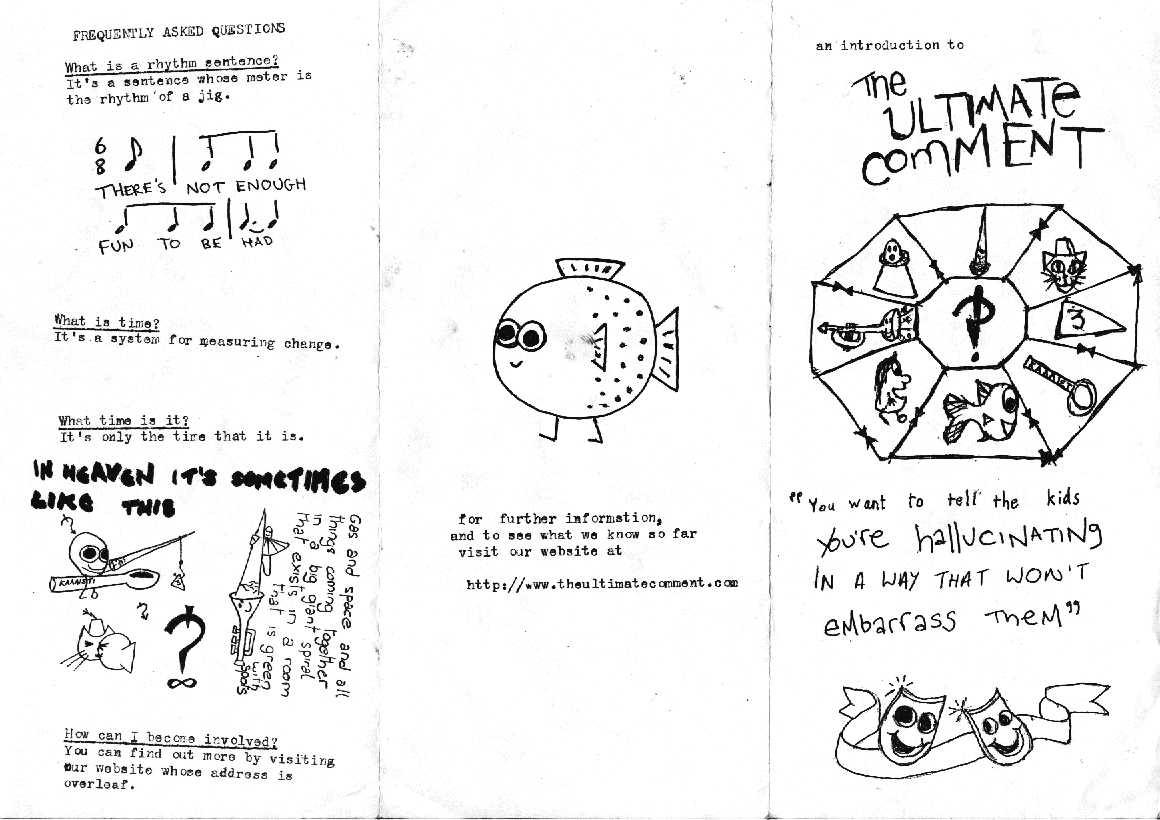 FREQUENTLY ASKED QUESTIONS
What is a rhythm sentence?
It's a sentence whose meter is
the rhythm of a jig.
6
8
THERE'S NOT ENOUGH
FUN TO BE HAD
What is time?
It's a system for measuring change.
What time is it?
It's only the time that it is.
IN HEAVEN IT'S SOMETIMES
LIKE THIS
Gas and space and all
things coming together
in a big giant spiral
that exists in a room
that is green
with
spots
?
∞
How can I become involved?
You can find out more by visiting
our website whose address is
overleaf.
for further information,
and to see what we know so far
visit our website at
http://www.theultimatecomment.com
an introduction to
The
ULTIMATe
COmMENT
3
"You want to tell the kids
you're hallUCINATING
IN A WAY THAT WON'T
eMbarrass TheM"